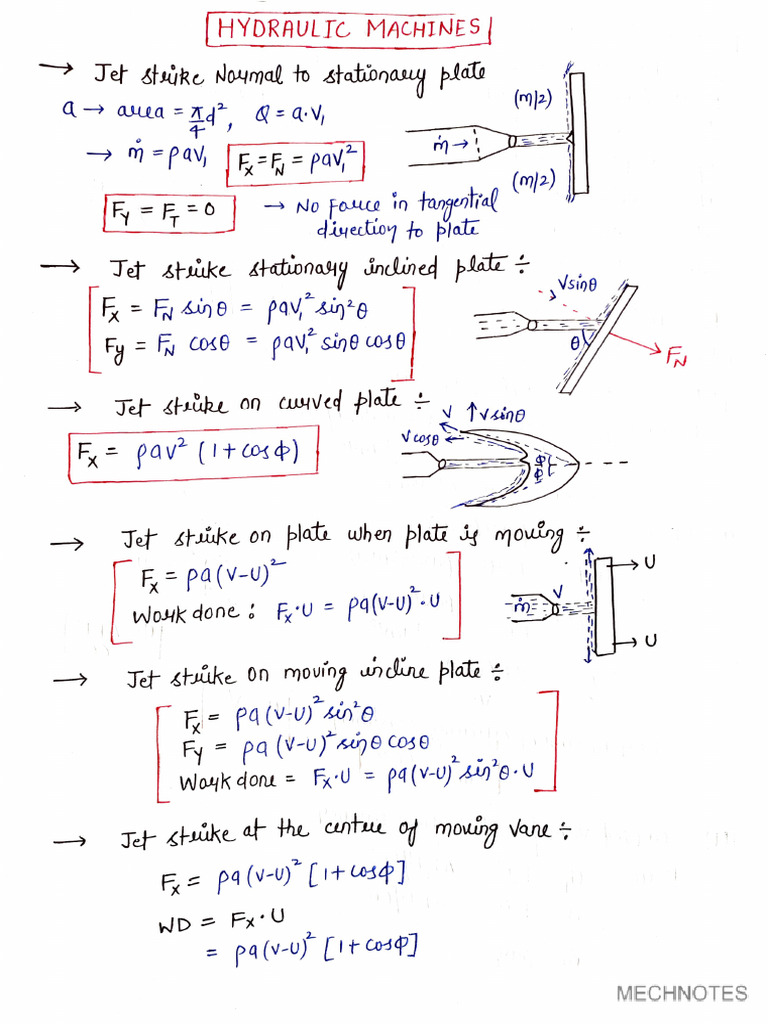 HYDRAULIC MACHINES
→ Jet strike Normal to stationary plate
a → area = π/4 d², Q = a·V₁
→ ṁ = ρaV₁ Fx = FN = ρaV₁²
(ṁ/2)
ṁ→
(ṁ/2)
Fy = FT = 0 → No force in tangential
direction to plate
→ Jet strike stationary inclined plate ÷
Fx = FN sinθ = ρaV₁² sin²θ
Fy = FN cosθ = ρaV₁² sinθ cosθ
Vsinθ
θ
FN
→ Jet strike on curved plate ÷
Fx = ρav² (1+cosϕ)
V ↑Vsinθ
Vcosθ
ϕ
ϕ
→ Jet strike on plate when plate is moving ÷
Fx = ρa(V-U)²
Work done: Fx·U = ρa(V-U)²·U
ṁ
V
U
U
→ Jet strike on moving incline plate ÷
Fx = ρa(V-U)² sin²θ
Fy = ρa(V-U)² sinθ cosθ
Work done = Fx·U = ρa(V-U)² sin²θ·U
→ Jet strike at the centre of moving vane ÷
Fx = ρa(V-U)² [1+cosϕ]
WD = Fx·U
= ρa(V-U)² [1+cosϕ]
MECHNOTES